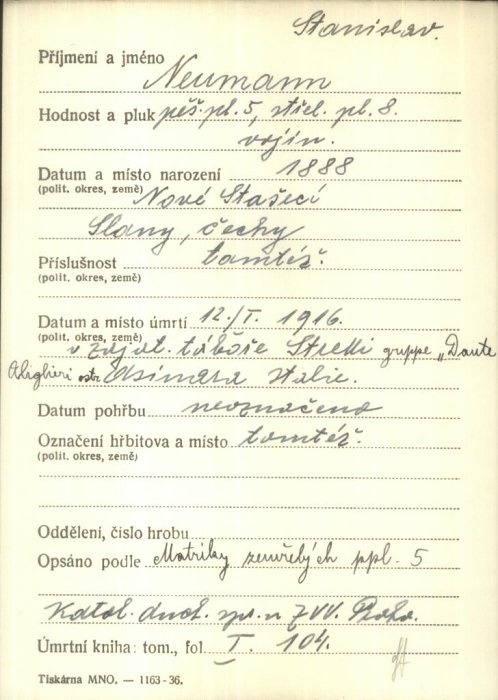 Stanislav.
Příjmení a jméno
Neumann
Hodnost a pluk pěš. pl. 5, střel. pl. 8.
vojín.
Datum a místo narození 1888
(polit. okres, země) Nové Stašecí
Slany, čechy
Příslušnost tamtéž.
(polit. okres, země)
Datum a místo úmrtí 12./I. 1916.
(polit. okres, země)
v zajat. táboře Stretti gruppe „Dante
Alighieri ostr. Asinara Italie.
Datum pohřbu neoznačeno
Označení hřbitova a místo tamtéž.
(polit. okres, země)
Oddělení, číslo hrobu
Opsáno podle Matriky zemřelých ppl. 5
Katol. duch. spr. u ZVV. Praha.
Úmrtní kniha: tom., fol I. 104.
Tiskárna MNO. — 1163-36.